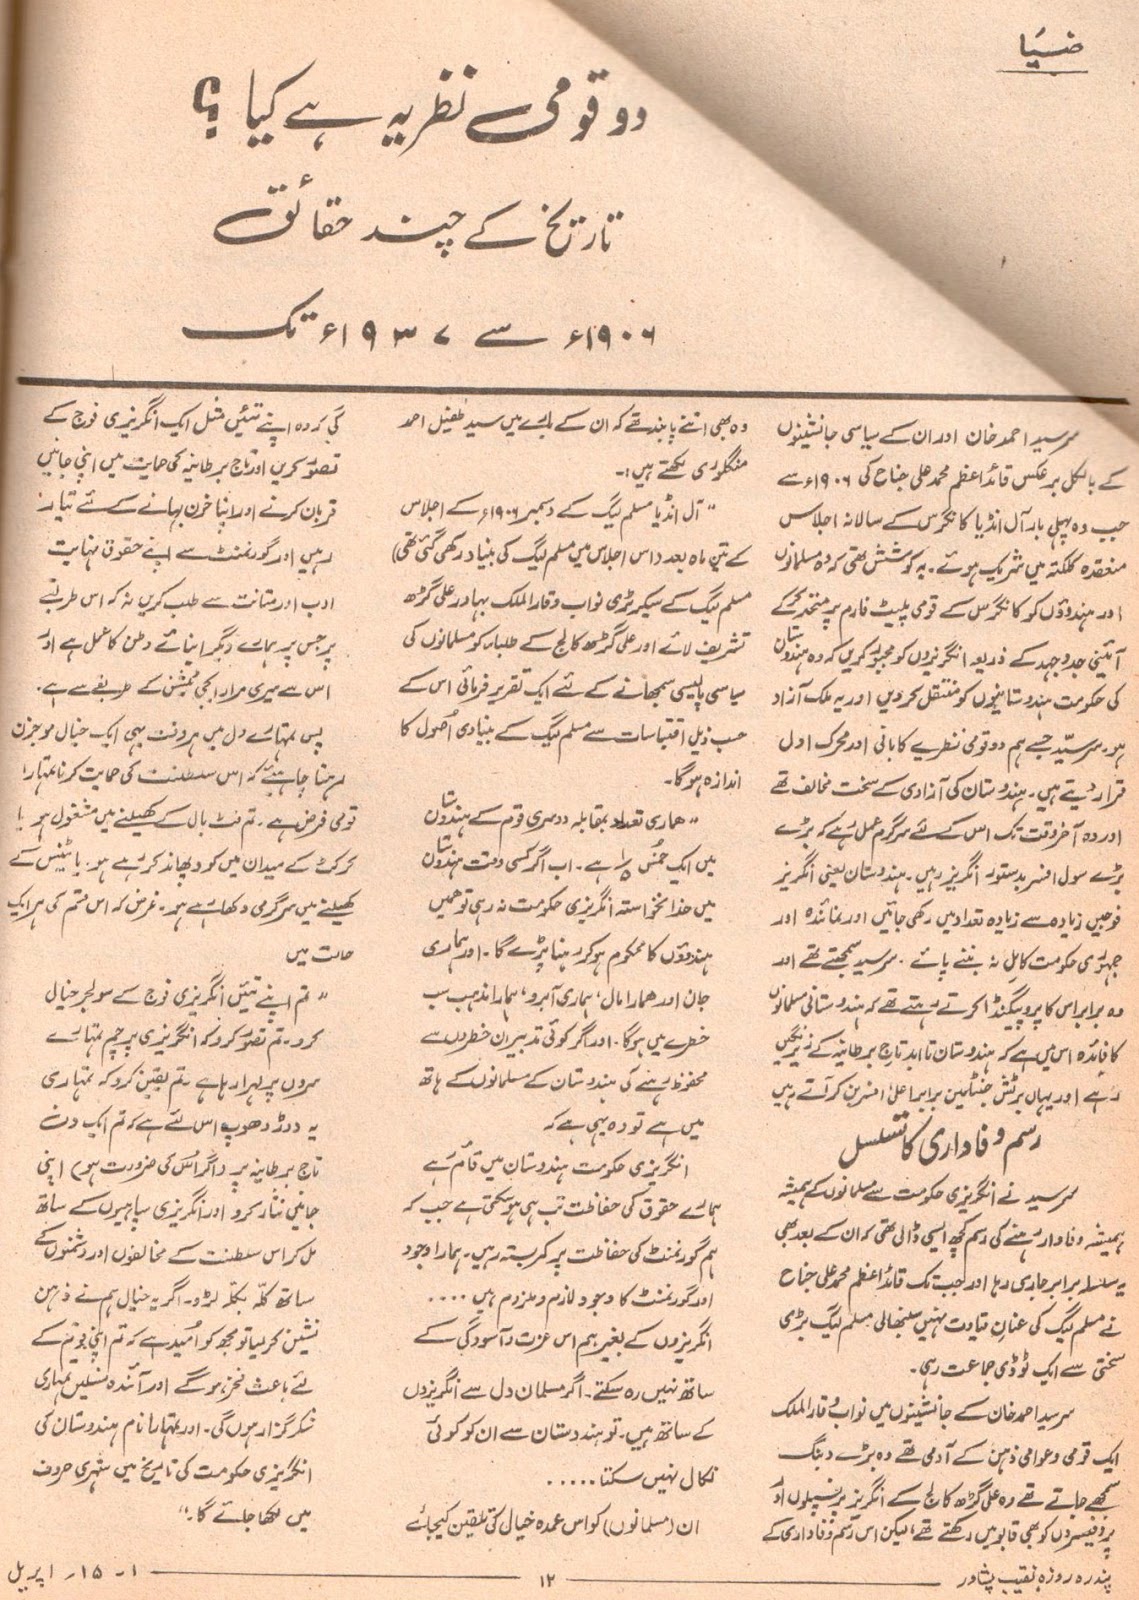 ضیا
دو قومی نظریہ ہے کیا ؟
تاریخ کے چند حقائق
۱۹۰۶ء سے ۱۹۳۷ء تک
سرسید احمد خان اور ان کے سیاسی جانشینوں
کے بالکل برعکس قائداعظم محمد علی جناح کی ۱۹۰۶ء سے
جب وہ پہلی بار آل انڈیا کانگرس کے سالانہ اجلاس
منعقدہ کلکتہ میں شریک ہوئے۔ یہ کوشش تھی کہ وہ مسلمانوں
اور ہندوؤں کو کانگرس کے قومی پلیٹ فارم پر متحد کر کے
آئینی جدوجہد کے ذریعہ انگریزوں کو مجبور کریں کہ وہ ہندوستان
کی حکومت ہندوستانیوں کو منتقل کر دیں اور یہ ملک آزاد
ہو۔ سرسیّد جسے ہم دو قومی نظریے کا بانی اور محرک اول
قرار دیتے ہیں۔ ہندوستان کی آزادی کے سخت مخالف تھے
اور وہ آخر وقت تک اس کے لئے سرگرم عمل رہے کہ بڑے
بڑے سول افسر بدستور انگریز رہیں۔ ہندوستان یعنی انگریز
فوجیں زیادہ سے زیادہ تعداد میں رکھی جائیں اور نمائندہ اور
جمہوری حکومت کامل نہ بننے پائے۔ سرسید سمجھتے تھے اور
وہ برابر اس کا پروپیگنڈا کرتے رہتے تھے کہ ہندوستانی مسلمانوں
کا فائدہ اس میں ہے کہ ہندوستان تا ابد تاج برطانیہ کے زیر نگیں
رہے اور یہاں برٹش جنٹلمین برابر اعلیٰ افسر بن کر آتے رہیں
رسم وفاداری کا تسلسل
سرسید نے انگریزی حکومت سے مسلمانوں کے ہمیشہ
ہمیشہ وفادار رہنے کی رسم کچھ ایسی ڈالی تھی کہ ان کے بعد بھی
یہ سلسلہ برابر جاری رہا اور جب تک قائداعظم محمد علی جناح
نے مسلم لیگ کی عنان قیادت نہیں سنبھالی مسلم لیگ بڑی
سختی سے ایک ٹوڈی جماعت رہی۔
سرسید احمد خان کے جانشینوں میں نواب وقار الملک
ایک قومی و عوامی ذہن کے آدمی تھے وہ بڑے دبنگ
سمجھے جاتے تھے وہ علی گڑھ کالج کے انگریز پرنسپلوں اور
پروفیسروں کو بھی قابو میں رکھتے تھے لیکن اس رسم وفاداری کے
وہ بھی اتنے پابند تھے کہ ان کے بارے میں سید طفیل احمد
منگلوری لکھتے ہیں:۔
"آل انڈیا مسلم لیگ کے دسمبر ۱۹۰۶ء کے اجلاس
کے تین ماہ بعد (اس اجلاس میں مسلم لیگ کی بنیاد رکھی گئی تھی)
مسلم لیگ کے سیکریٹری نواب وقار الملک بہادر علی گڑھ
تشریف لائے اور علی گڑھ کالج کے طلباء کو مسلمانوں کی
سیاسی پالیسی سمجھانے کے لئے ایک تقریر فرمائی اس کے
حسب ذیل اقتباسات سے مسلم لیگ کے بنیادی اُصول کا
اندازہ ہو گا۔
"ہماری تعداد بمقابلہ دوسری قوم کے ہندوستان
میں ایک خُمس ۱/۵ ہے۔ اب اگر کسی وقت ہندوستان
میں خدانخواستہ انگریزی حکومت نہ رہی تو ہمیں
ہندوؤں کا محکوم ہو کر رہنا پڑے گا۔ اور ہماری
جان اور ہمارا مال، ہماری آبرو، ہمارا مذہب سب
خطرے میں ہوگا۔ اور اگر کوئی تدبیر ان خطروں سے
محفوظ رہنے کی ہندوستان کے مسلمانوں کے ہاتھ
میں ہے تو وہ یہی ہے کہ
انگریزی حکومت ہندوستان میں قائم رہے
ہمارے حقوق کی حفاظت تب ہی ہو سکتی ہے جب کہ
ہم گورنمنٹ کی حفاظت پر کمربستہ رہیں۔ ہمارا وجود
اور گورنمنٹ کا وجود لازم و ملزوم ہیں ....
انگریزوں کے بغیر ہم اس عزت و آسودگی کے
ساتھ نہیں رہ سکتے۔ اگر مسلمان دل سے انگریزوں
کے ساتھ ہیں۔ تو ہندوستان سے ان کو کوئی
نکال نہیں سکتا.....
ان (مسلمانوں) کو اس عمدہ خیال کی تلقین کیجائے
کہ وہ اپنے تئیں مثل ایک انگریزی فوج کے
تصور کریں اور تاج برطانیہ کی حمایت میں اپنی جانیں
قربان کرنے اور اپنا خون بہانے کے لئے تیار
رہیں اور گورنمنٹ سے اپنے حقوق نہایت
ادب اور متانت سے طلب کریں نہ کہ اس طریقے
پر جس پر ہمارے دیگر ابنائے وطن کا عمل ہے اور
اس سے میری مراد ایجی ٹیشن کے طریقے سے ہے۔
پس تمہارے دل میں ہر وقت یہی ایک خیال موجزن
رہنا چاہیئے کہ اس سلطنت کی حمایت کرنا تمہارا
قومی فرض ہے۔ تم فٹ بال کے کھیلنے میں مشغول ہو یا
کرکٹ کے میدان میں کود پھاند کر رہے ہو۔ یا ٹینس کے
کھیلنے میں سرگرمی دکھا رہے ہو۔ غرض کہ اس قسم کی ہر ایک
حالت میں
"تم اپنے تئیں انگریزی فوج کے سولجر خیال
کرو۔ تم تصور کرو کہ انگریزی پرچم تمہارے
سروں پر لہرا رہا ہے۔ تم یقین کرو کہ تمہاری
یہ دوڑ دھوپ اس لئے ہے کہ تم ایک دن
تاج برطانیہ پر (اگر اُس کی ضرورت ہو) اپنی
جانیں نثار کرو اور انگریزی سپاہیوں کے ساتھ
مل کر اس سلطنت کے مخالفوں اور دشمنوں کے
ساتھ کلّہ بکلّہ لڑو۔ اگر یہ خیال تم نے ذہن
نشین کر لیا تو مجھ کو اُمید ہے کہ تم اپنی قوم کے
لئے باعث فخر ہو گے اور آئندہ نسلیں تمہاری
شکر گزار ہوں گی۔ اور تمہارا نام ہندوستان کی
انگریزی حکومت کی تاریخ میں سنہری حروف
میں لکھا جائے گا۔"
پندرہ روزہ نقیب پشاور
۱۲
۱۔ ۱۵۔ اپریل